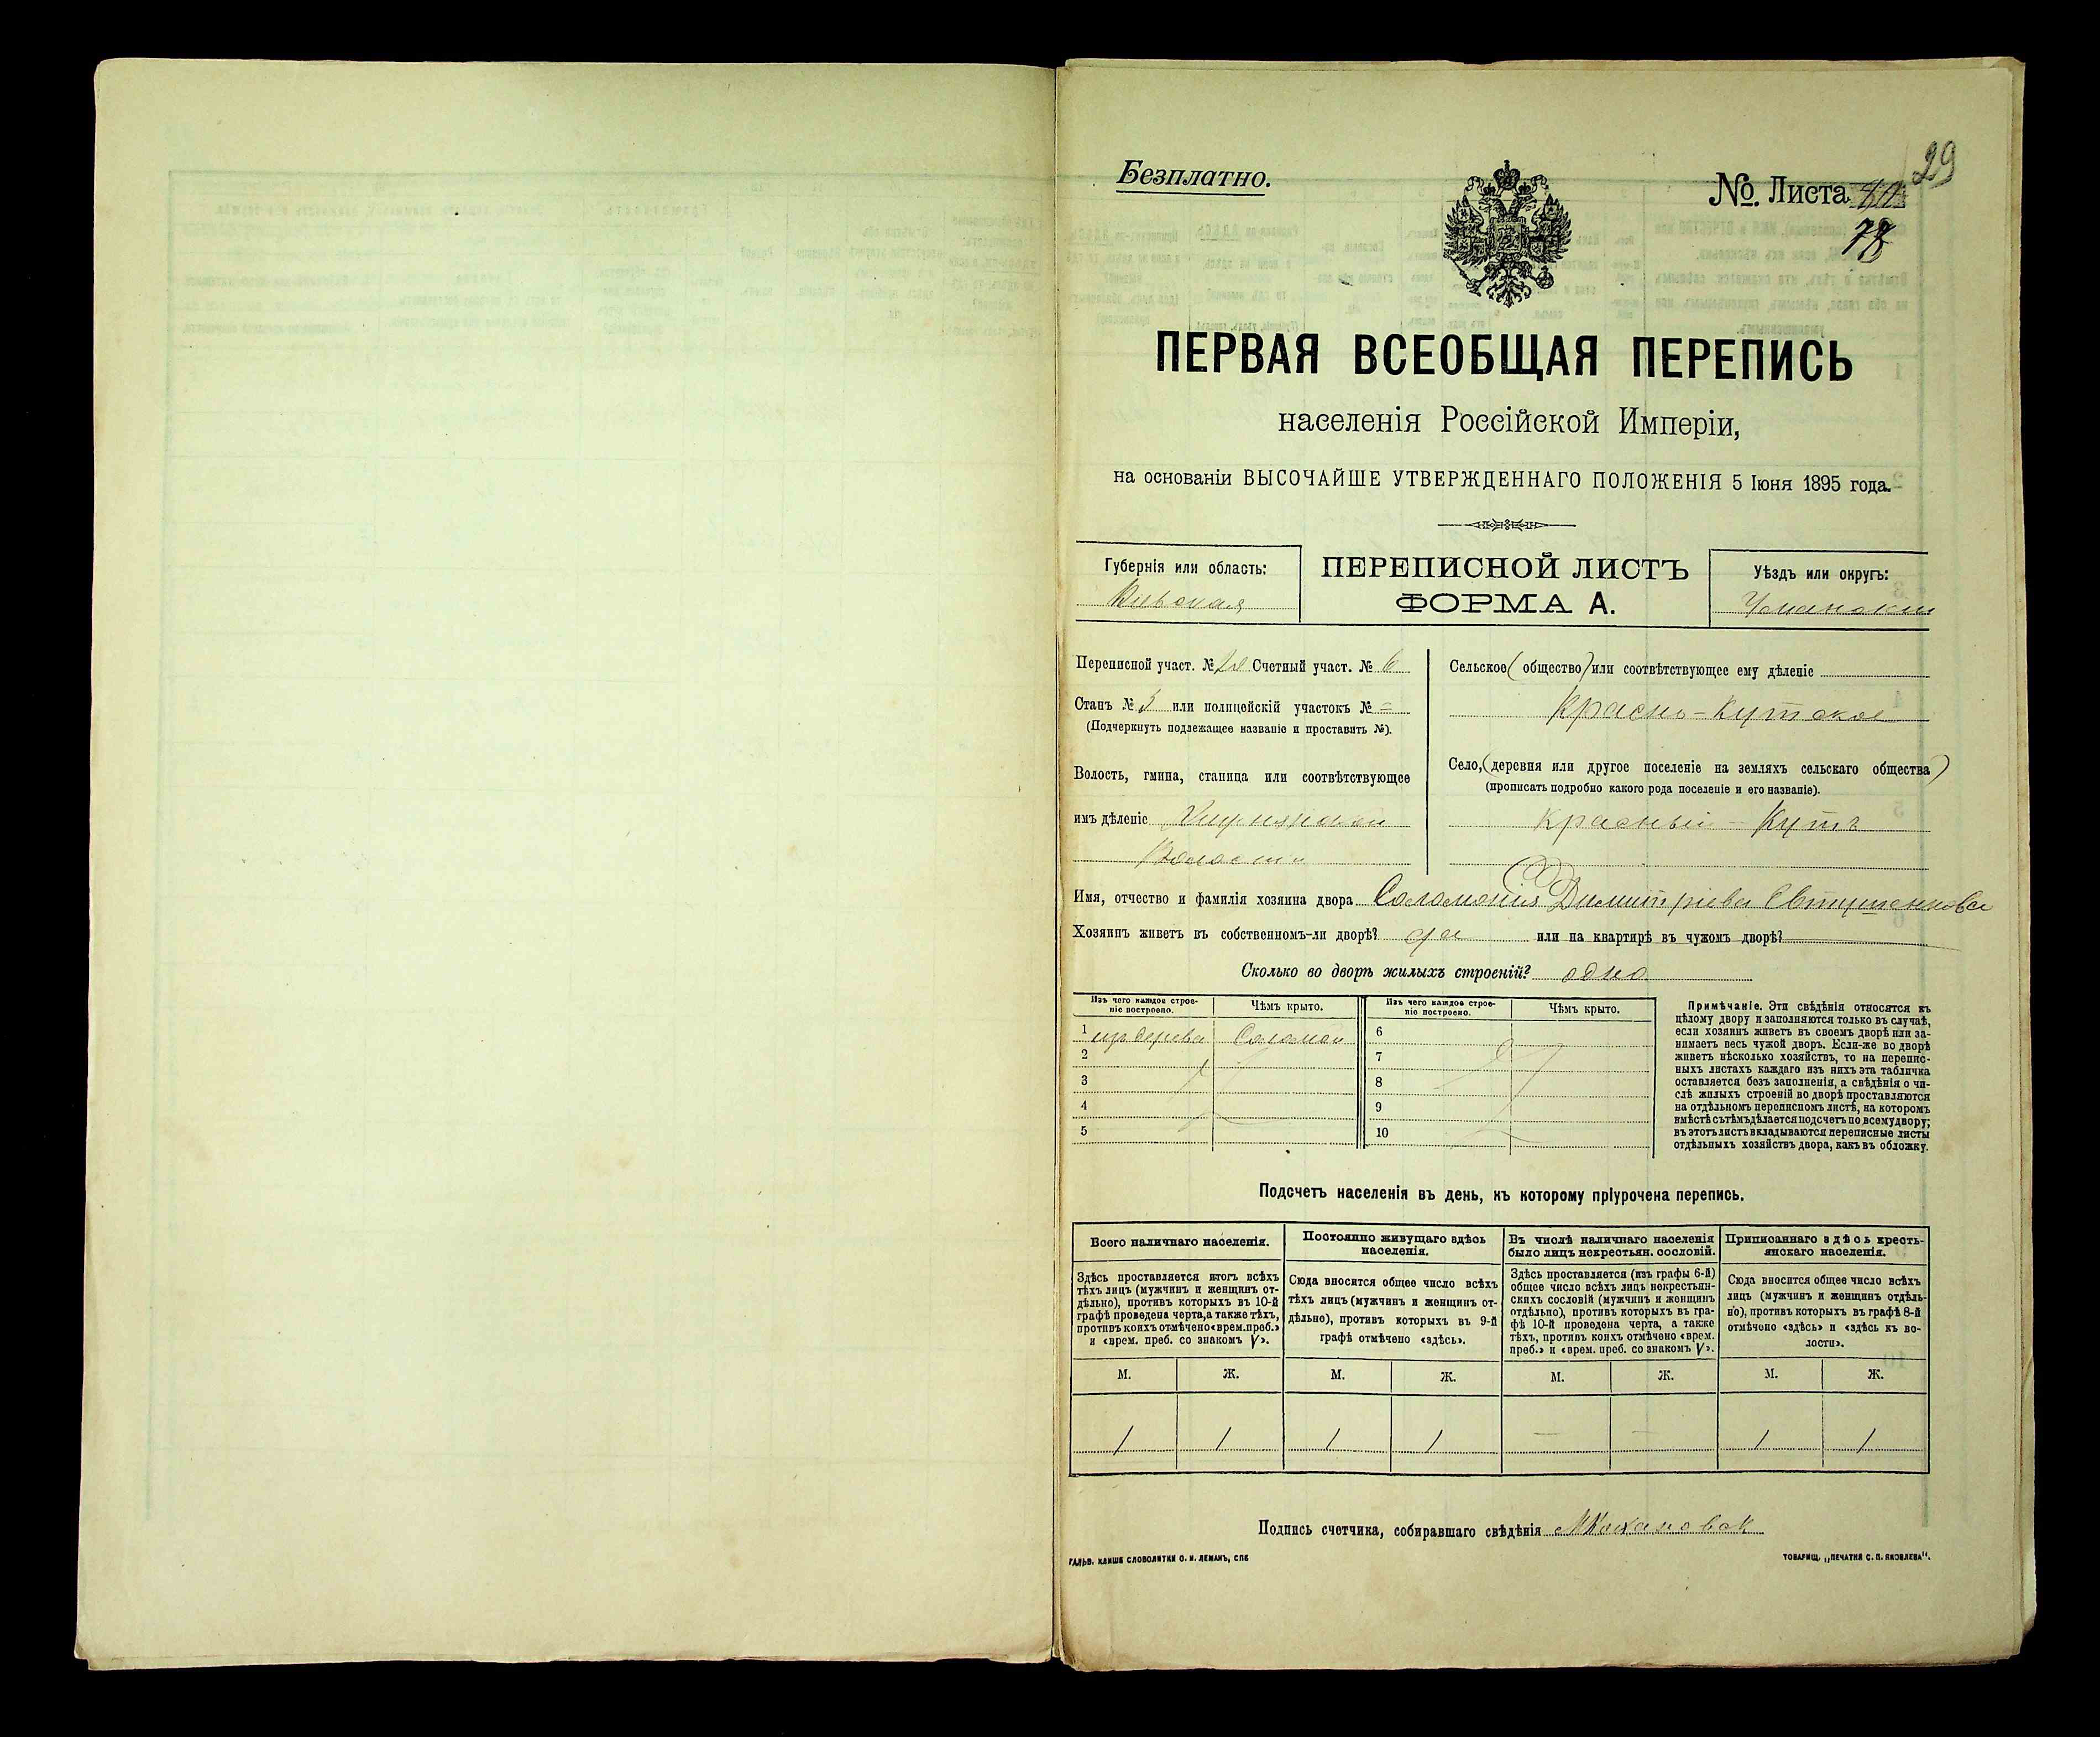 29
Безплатно.
№. Листа
78
ПЕРВАЯ ВСЕОБЩАЯ ПЕРЕПИСЬ
населенія Россійской Имперіи,
на основаніи ВЫСОЧАЙШЕ УТВЕРЖДЕННАГО ПОЛОЖЕНІЯ 5 Іюня 1895 года.
Губернія или область:
Кіевская
ПЕРЕПИСНОЙ ЛИСТЪ
ФОРМА А.
Уѣздъ или округъ:
Уманскій
Переписной участ. № Счетный участ. № 6
Станъ № 3 или полицейскій участокъ № =
(Подчеркнуть подлежащее названіе и проставить №).
Волость, гмина, станица или соотвѣтствующее
имъ дѣленіе
Волости
Сельское (общество) или соотвѣтствующее ему дѣленіе
Красно-Кутское
Село, (деревня или другое поселеніе на земляхъ сельскаго общества)
(прописать подробно какого рода поселеніе и его названіе).
Красный-Кутъ
Имя, отчество и фамилія хозяина двора Соломонія Димитріева Евтушенкова
Хозяинъ живетъ въ собственномъ-ли дворѣ? да или на квартирѣ въ чужомъ дворѣ?
Сколько во дворѣ жилыхъ строеній? одно
Изъ чего каждое строеніе построено.
Чѣмъ крыто.
Изъ чего каждое строеніе построено.
Чѣмъ крыто.
1 изъ дерева Соломой
2
3
4
5
6
7
8
9
10
Примѣчаніе. Эти свѣдѣнія относятся къ
цѣлому двору и заполняются только въ случаѣ,
если хозяинъ живетъ въ своемъ дворѣ или за-
нимаетъ весь чужой дворъ. Если-же во дворѣ
живетъ нѣсколько хозяйствъ, то на перепис-
ныхъ листахъ каждаго изъ нихъ эта табличка
оставляется безъ заполненія, а свѣдѣнія о чи-
слѣ жилыхъ строеній во дворѣ проставляются
на отдѣльномъ переписномъ листѣ, на которомъ
вмѣстѣ съ тѣмъ дѣлается подсчетъ по всему двору;
въ этотъ листъ вкладываются переписные листы
отдѣльныхъ хозяйствъ двора, какъ въ обложку.
Подсчетъ населенія въ день, къ которому пріурочена перепись.
Всего наличнаго населенія.
Здѣсь проставляется итогъ всѣхъ
тѣхъ лицъ (мужчинъ и женщинъ от-
дѣльно), противъ которыхъ въ 10-й
графѣ проведена черта, а также тѣхъ,
противъ коихъ отмѣчено «врем. преб.»
и «врем. преб. со знакомъ V».
Постоянно живущаго здѣсь
населенія.
Сюда вносится общее число всѣхъ
тѣхъ лицъ (мужчинъ и женщинъ от-
дѣльно), противъ которыхъ въ 9-й
графѣ отмѣчено «здѣсь».
Въ числѣ наличнаго населенія
было лицъ некрестьян. сословій.
Здѣсь проставляется (изъ графы 6-й)
общее число всѣхъ лицъ некрестьян-
скихъ сословій (мужчинъ и женщинъ
отдѣльно), противъ которыхъ въ гра-
фѣ 10-й проведена черта, а также
тѣхъ, противъ коихъ отмѣчено «врем.
преб.» и «врем. преб. со знакомъ V».
Приписаннаго здѣсь кресть-
янскаго населенія.
Сюда вносится общее число всѣхъ
лицъ (мужчинъ и женщинъ отдѣль-
но), противъ которыхъ въ графѣ 8-й
отмѣчено «здѣсь» и «здѣсь къ во-
лости».
М. Ж. М. Ж. М. Ж. М. Ж.
1 1 1 1 — — 1 1
Подпись счетчика, собиравшаго свѣдѣнія
ГАЛЬВ. КЛИШЕ СЛОВОЛИТНИ О. И. ЛЕМАНЪ, СПБ
ТОВАРИЩ. „ПЕЧАТНЯ С. П. ЯКОВЛЕВА".